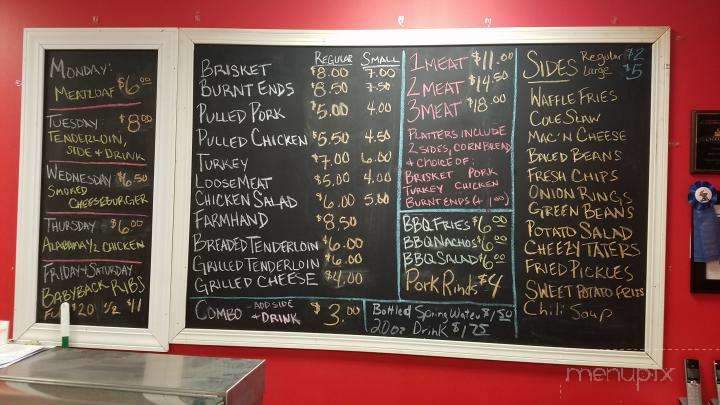 MONDAY:
MEATLOAF $6.00
TUESDAY $8.00
TENDERLOIN,
SIDE + DRINK
WEDNESDAY $6.50
SMOKED
CHEESEBURGER
THURSDAY $6.00
ALABAMA 1/2 CHICKEN
FRIDAY + SATURDAY
BABYBACK RIBS
FULL $20 1/2 $11
REGULAR SMALL
BRISKET $8.00 7.00
BURNT ENDS $8.50 7.50
PULLED PORK $5.00 4.00
PULLED CHICKEN $5.50 4.50
TURKEY $7.00 6.00
LOOSEMEAT $5.00 4.00
CHICKEN SALAD $6.00 5.00
FARMHAND $8.50
BREADED TENDERLOIN $6.00
GRILLED TENDERLOIN $6.00
GRILLED CHEESE $4.00
COMBO - ADD SIDE + DRINK $3.00
1 MEAT $11.00
2 MEAT $14.50
3 MEAT $18.00
PLATTERS INCLUDE
2 SIDES, CORNBREAD
+ CHOICE OF:
BRISKET PORK
TURKEY CHICKEN
BURNT ENDS (+1.00)
BBQ FRIES $6.00
BBQ NACHOS $6.00
BBQ SALAD $6.00
PORK RINDS $4
Bottled Spring Water $1.50
20oz Drink $1.75
SIDES Regular $2
Large $5
WAFFLE FRIES
COLE SLAW
MAC 'N CHEESE
BAKED BEANS
FRESH CHIPS
ONION RINGS
GREEN BEANS
POTATO SALAD
CHEEZY TATERS
FRIED PICKLES
SWEET POTATO FRIES
Chili Soup
menupix